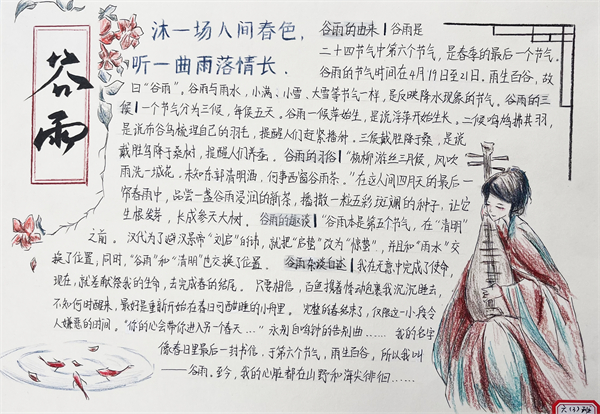 谷雨
沐一场人间春色，
听一曲雨落情长．
谷雨的由来｜谷雨是
二十四节气中第六个节气，是春季的最后一个节气。
谷雨的节气时间在4月19日至21日。雨生百谷，故
曰“谷雨”，谷雨与雨水，小满、小雪、大雪等节气一样，是反映降水现象的节气。谷雨的三
候｜一个节气分为三候，每候五天。谷雨一候萍始生，是说浮萍开始生长。二候鸣鸠拂其羽，
是说布谷鸟梳理自己的羽毛，提醒人们赶紧播种。三候戴胜降于桑，是说
戴胜鸟降于桑树，提醒人们养蚕。谷雨的习俗｜“杨柳游丝三月候，风吹
雨洗一城花。未知东郭清明酒，何事西窗谷雨茶。”在这人间四月天的最后一
帘春雨中，品尝一盏谷雨浸润的新茶，播撒一粒五彩斑斓的种子，让它
生根发芽，长成参天大树。谷雨的趣谈｜“谷雨本是第五个节气，在“清明”
之前。汉代为了避汉景帝“刘启”的讳，就把“启蛰”改为“惊蛰”，并且和“雨水”交
换了位置，同时，“谷雨”和“清明”也交换了位置。谷雨杂谈自述｜我在无意中完成了使命，
现在，就差献祭我的生命，去完成春的结尾。只要相信，白鱼携着悸动包裹我沉沉睡去，
不知何时醒来，最好是重新开始在春日可酣睡的小舟里。完整的春结束了，仅限这一小段令
人嫌恶的时间。“你的心会带你进入另一个春天…”永别自鸣钟的告别曲…… 我的名字
像春日里最后一封书信．于第六个节气，雨生百谷，所以我叫
——谷雨。至今，我的心脏都在山野和海尖徘徊……
六(3)班